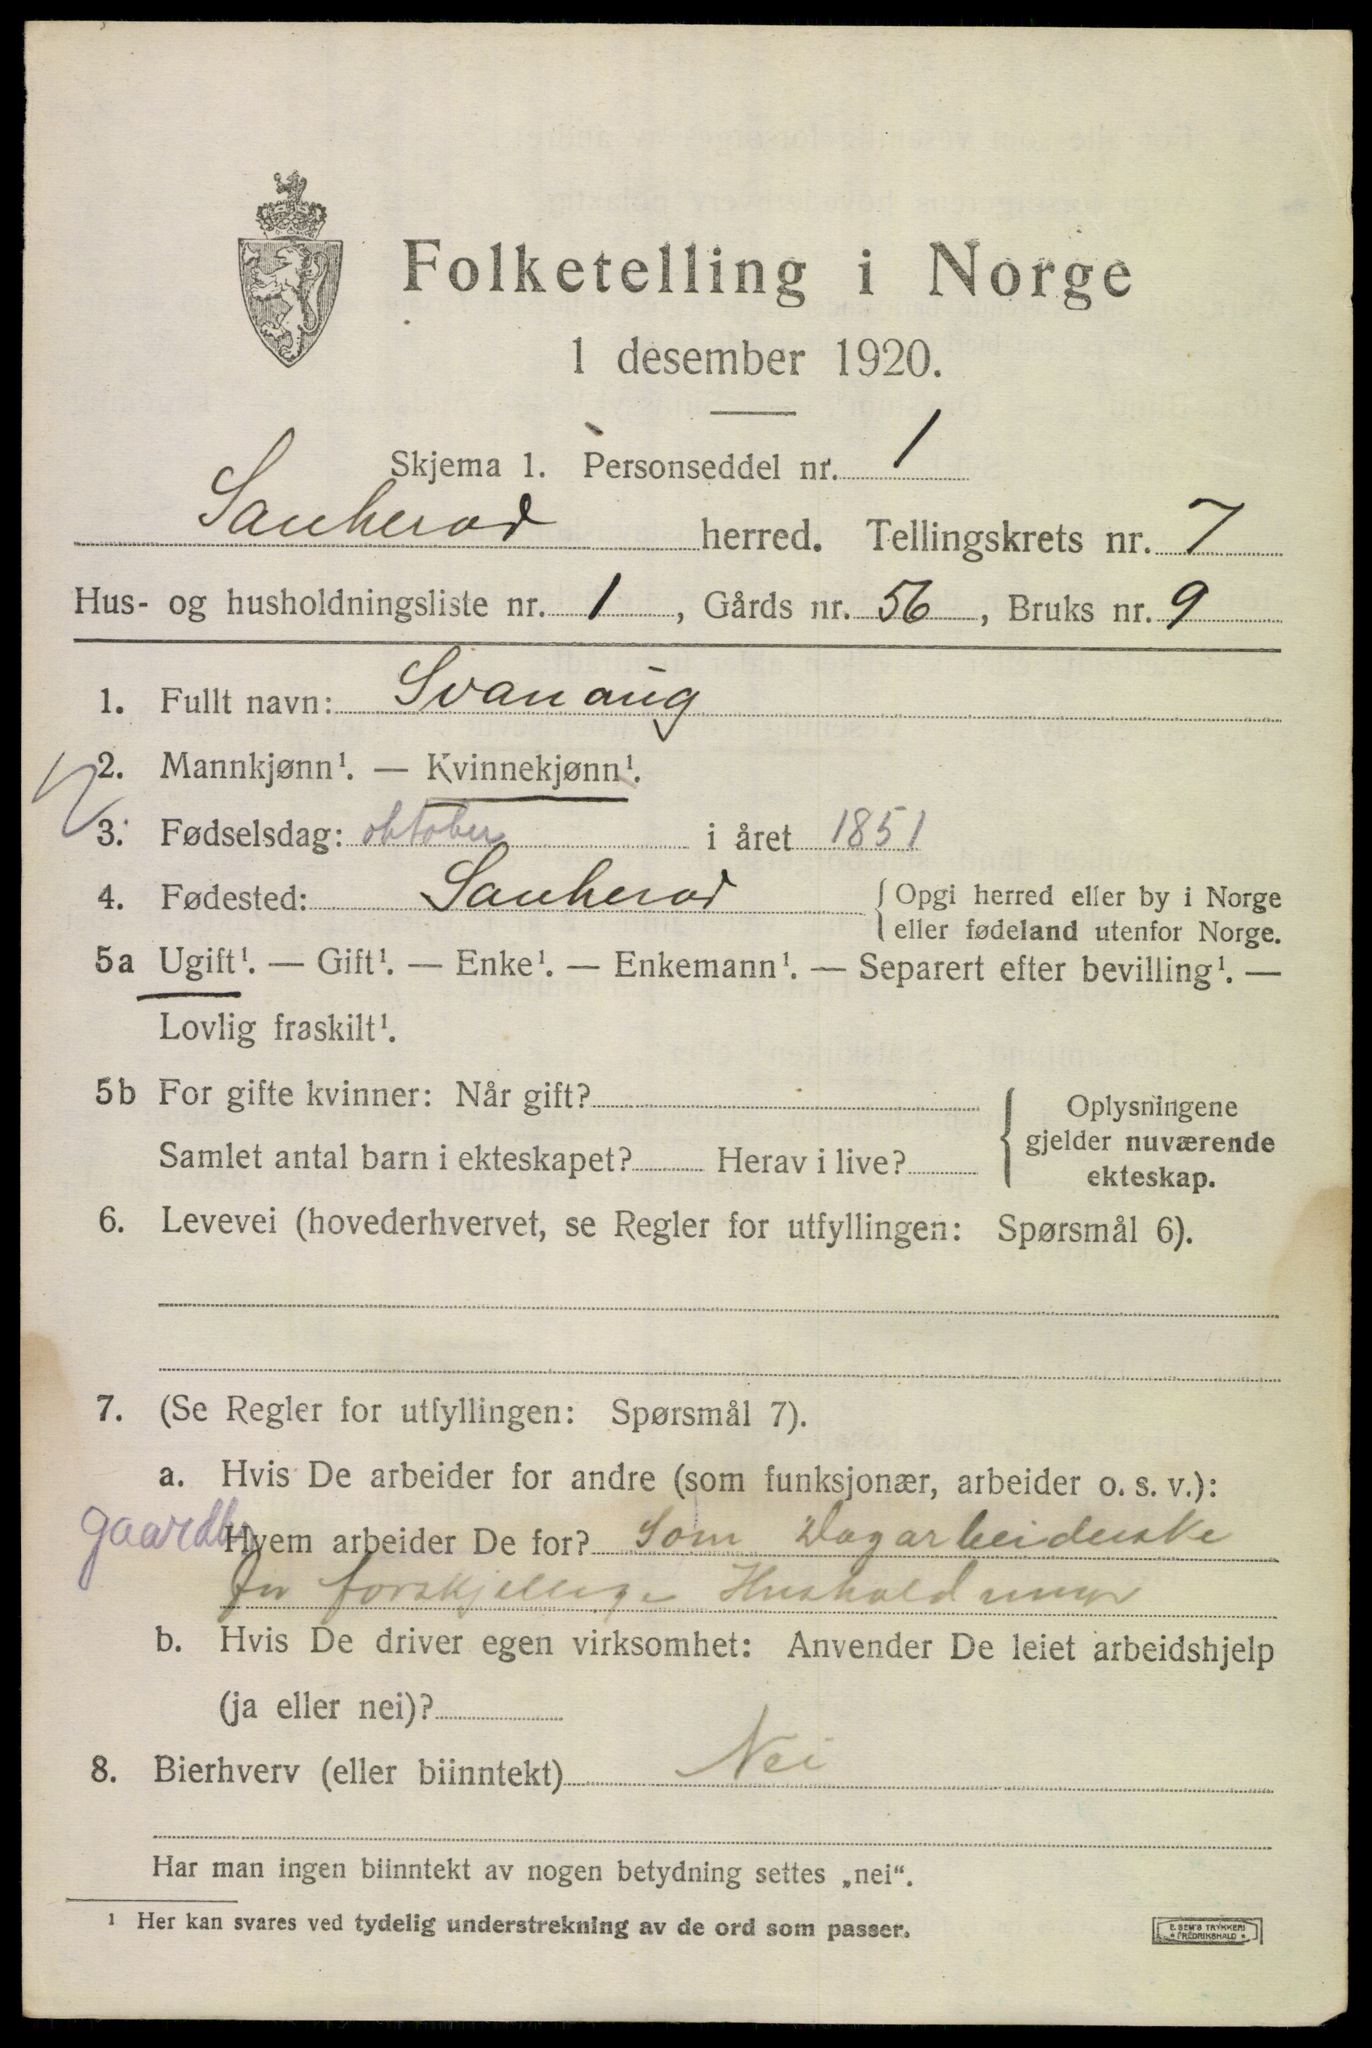 Folketelling i Norge
1 desember 1920.
Skjema 1. Personseddel nr. 1
Sauherad herred. Tellingskrets nr. 7
Hus- og husholdningsliste nr. 1, Gårds nr. 56, Bruks nr. 9
1. Fullt navn: Svanaug
2. Mannkjønn¹. — Kvinnekjønn¹.
3. Fødselsdag: oktober i året 1851
4. Fødested: Sauherad { Opgi herred eller by i Norge
eller fødeland utenfor Norge.
5a Ugift¹. — Gift¹. — Enke¹. — Enkemann¹. — Separert efter bevilling¹. —
Lovlig fraskilt¹.
5b For gifte kvinner: Når gift?
Samlet antal barn i ekteskapet? Herav i live?
{ Oplysningene
gjelder nuværende
ekteskap.
6. Levevei (hovederhvervet, se Regler for utfyllingen: Spørsmål 6).
7. (Se Regler for utfyllingen: Spørsmål 7).
a. Hvis De arbeider for andre (som funksjonær, arbeider o. s. v.):
Hvem arbeider De for? Som Dagarbeiderske
for forskjellige Husholdninger
b. Hvis De driver egen virksomhet: Anvender De leiet arbeidshjelp
(ja eller nei)?
8. Bierhverv (eller biinntekt) Nei
Har man ingen biinntekt av nogen betydning settes „nei“.
¹ Her kan svares ved tydelig understrekning av de ord som passer.
E. SEM'S TRYKKERI
* FREDRIKSHALD *